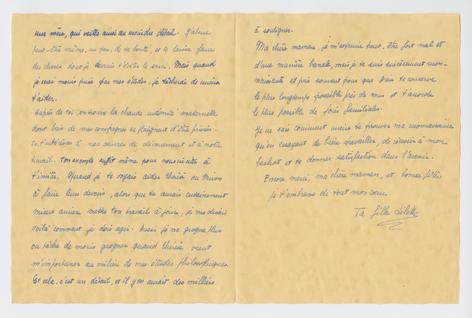 une mère, qui veille aussi au moindre détail. J'abuse
peut-être même, un peu, de ta bonté, et te laisse faire
des choses dont je devrais t'éviter le souci. Mais quand
je serai moins prise par mes études, je tâcherai de mieux
t'aider.
Auprès de toi, je trouve la chaude intimité maternelle
dont bien de mes compagnes se plaignent d'être privées.
Tu t'intéresses à nos succès de classement et à notre
travail. Ton exemple suffit même pour nous inciter à
t'imiter. Quand je te voyais aider Thérèse ou
à faire leurs devoirs, alors que tu aurais certainement
mieux aimer mettre ton travail à jour, je me disais
voilà comment je dois agir. Aussi je ne grogne plus
ou tâche de moins grogner quand Thérèse vient
m'importuner au milieu de mes études philosophiques.
Et cela, c'est un détail, et il y en aurait des milliers
à souligner.
Ma chère maman, je m'exprime peut-être fort mal et
d'une manière banale, mais je te suis sincèrement
reconnaissante et prie souvent pour que Dieu te conserve
le plus longtemps possible près de nous et t'accorde
le plus possible de joies familiales.
Je ne sais comment mieux te prouver ma reconnaissance
qu'en essayant de bien travailler, de réussir à mon
bachot et te donner satisfaction dans l'avenir.
Encore merci, ma chère maman, et bonne fête,
je t'embrasse de tout mon cœur.
Ta fille